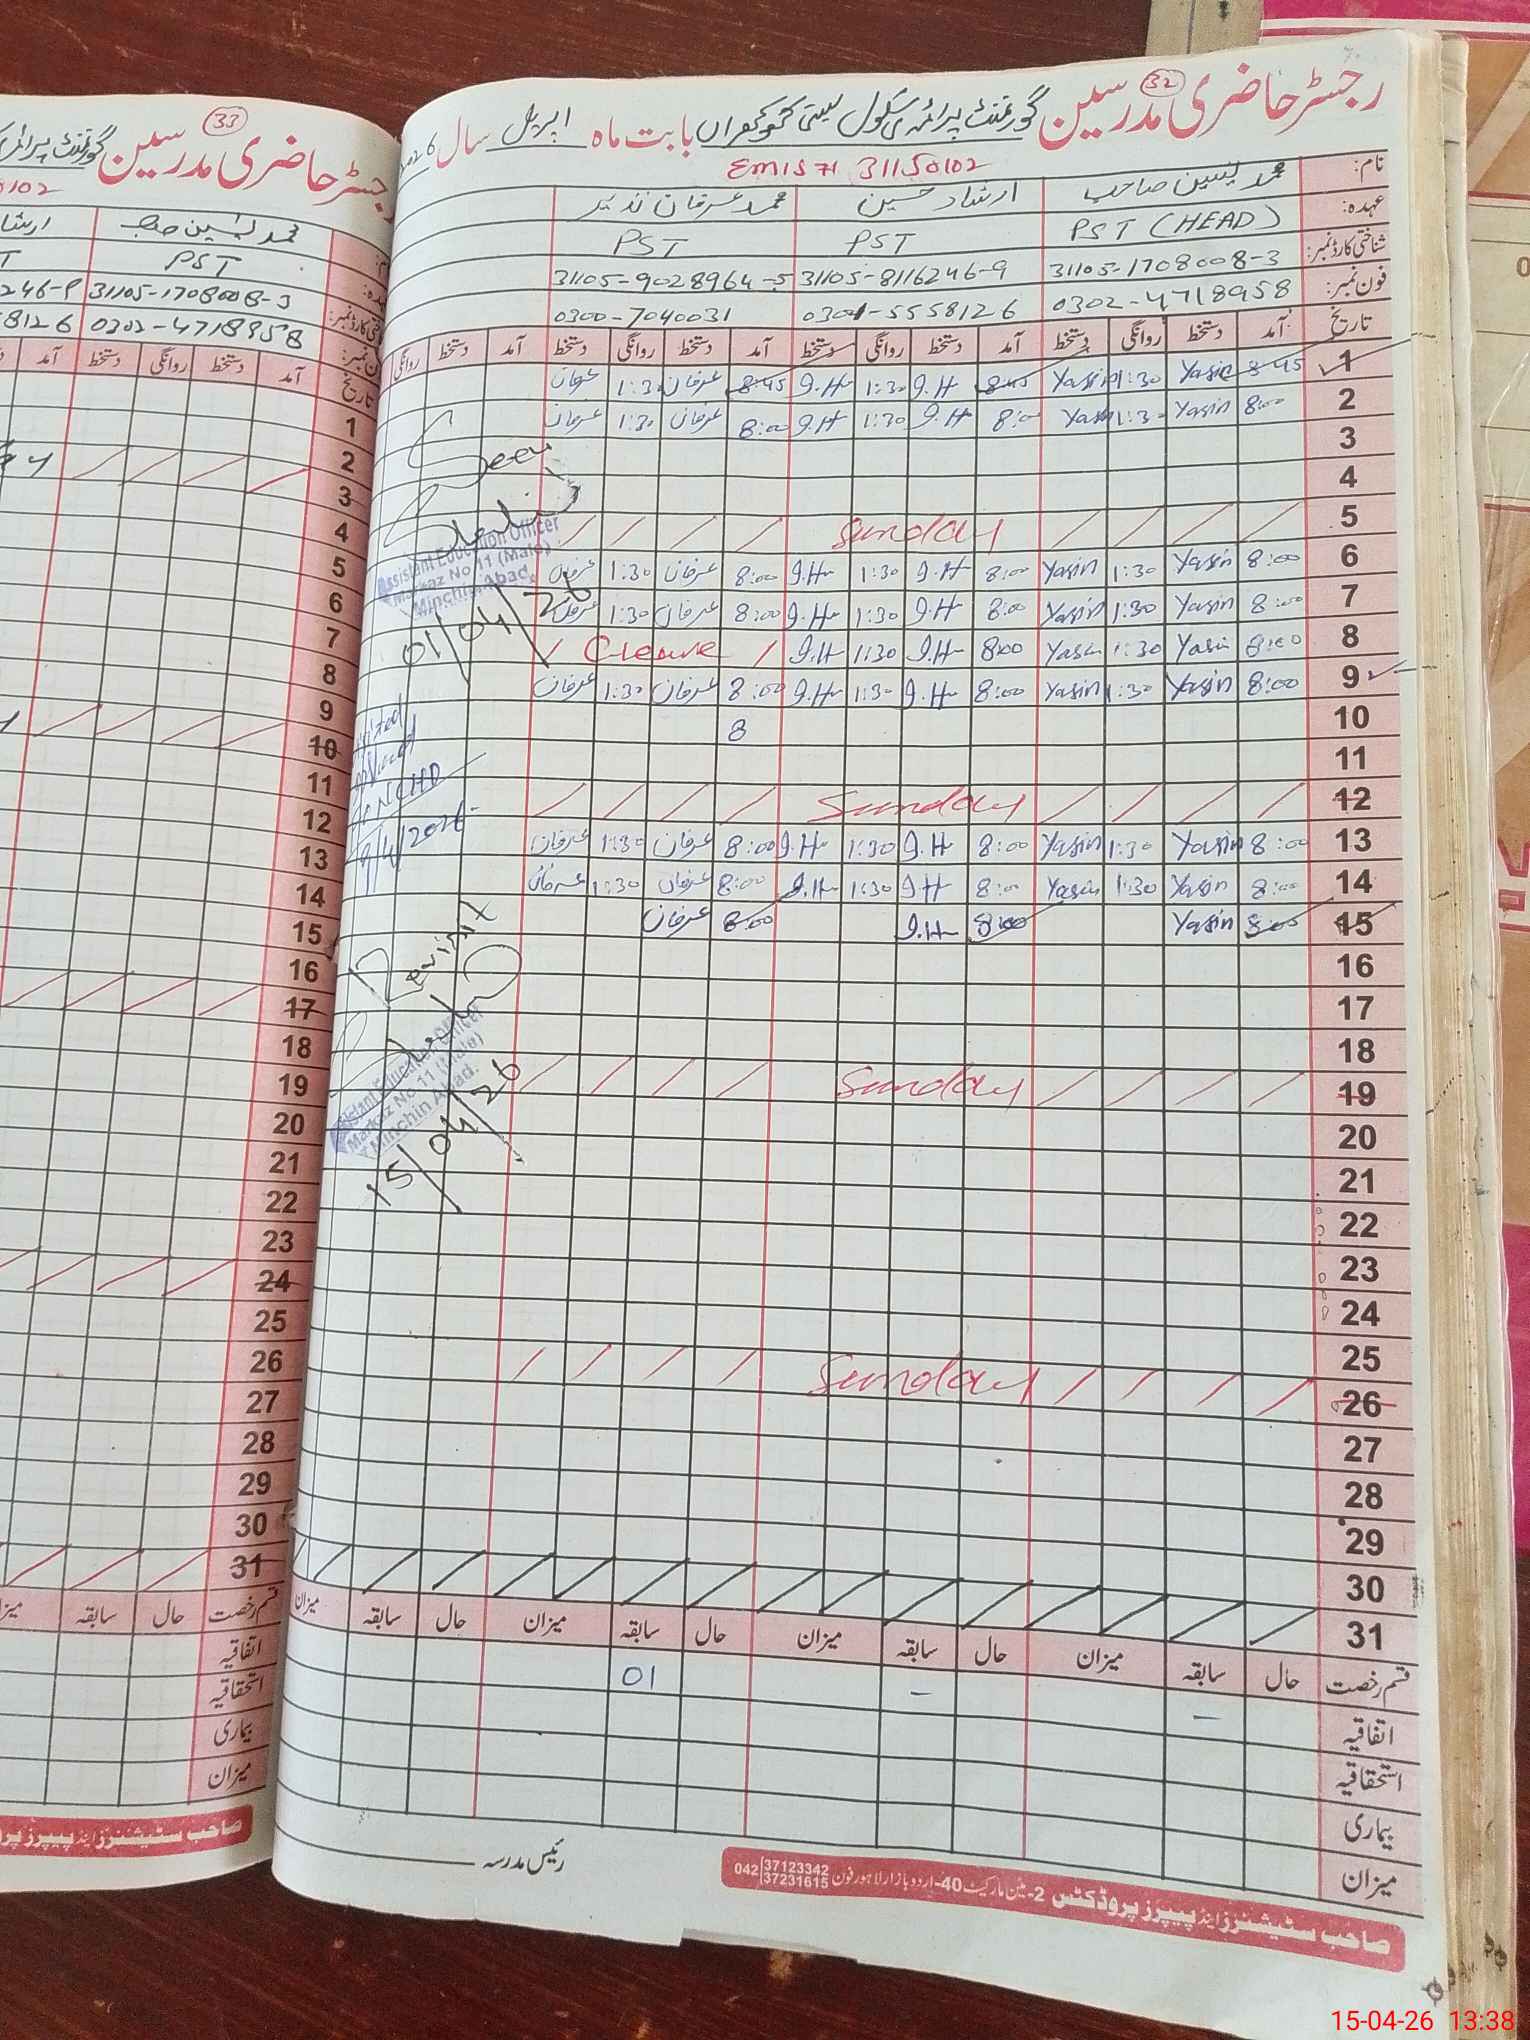 رجسٹر حاضری مدرسین 32 گورنمنٹ پرائمری سکول بستی بابت ماہ اپریل سال 2026
EMIS # 31150102
نام: محمد یسین صاحب ارشاد حسین محمد عرفان نذیر
عہدہ: PST (HEAD) PST PST
شناختی کارڈ نمبر: 31105-1708008-3 31105-8116246-9 31105-9028964-5
فون نمبر: 0302-4718958 0301-5558126 0300-7040031
تاریخ آمد دستخط روانگی دستخط آمد دستخط روانگی دستخط آمد دستخط روانگی دستخط آمد دستخط روانگی
1 8:45 Yasin 1:30 Yasin 8:45 I.H 1:30 I.H 8:45 عرفان 1:30 عرفان
2 8:00 Yasin 1:30 Yasin 8:00 I.H 1:30 I.H 8:00 عرفان 1:30 عرفان
3
4
5 Sunday
6 8:00 Yasin 1:30 Yasin 8:00 I.H 1:30 I.H 8:00 عرفان 1:30 عرفان
7 8:00 Yasin 1:30 Yasin 8:00 I.H 1:30 I.H 8:00 عرفان 1:30 عرفان
8 8:00 Yasin 1:30 Yasin 8:00 I.H 1:30 I.H C leave
9 8:00 Yasin 1:30 Yasin 8:00 I.H 1:30 I.H 8:00 عرفان 1:30 عرفان
10 8
11
12 Sunday
13 8:00 Yasin 1:30 Yasin 8:00 I.H 1:30 I.H 8:00 عرفان 1:30 عرفان
14 8:00 Yasin 1:30 Yasin 8:00 I.H 1:30 I.H 8:00 عرفان 1:30 عرفان
15 8:00 Yasin 8:00 I.H 8:00 عرفان
16
17
18
19 Sunday
20
21
22
23
24
25
26 Sunday
27
28
29
30
31
قسم رخصت حال سابقہ میزان حال سابقہ میزان حال سابقہ میزان حال سابقہ میزان
اتفاقیہ - - 01
استحقاقیہ
بیماری
میزان
رئیس مدرسہ
صاحب سٹیشنرز اینڈ پیپرز پروڈکٹس 2-مین مارکیٹ 40-اردو بازار لاہور فون 042 37123342 37231615
Seen
Assistant Education Officer
Markaz No 11 (Male)
Minchin Abad.
01/04/26
Visited
NCHD
9/4/2026
Revisit
Assistant Education Officer
Markaz No 11 (Male)
Minchin Abad.
15/04/26
33
رجسٹر حاضری مدرسین گورنمنٹ پرائمری
0102
محمد یسین صاحب
PST
31105-1708008-3
246-9
0302-4718958
8126
تاریخ آمد دستخط روانگی دستخط آمد
1
2
3
4
5
6
7
8
9
10
11
12
13
14
15
16
17
18
19
20
21
22
23
24
25
26
27
28
29
30
31
قسم رخصت حال سابقہ میزان
اتفاقیہ
استحقاقیہ
بیماری
میزان
صاحب سٹیشنرز اینڈ پیپرز
15-04-26 13:38